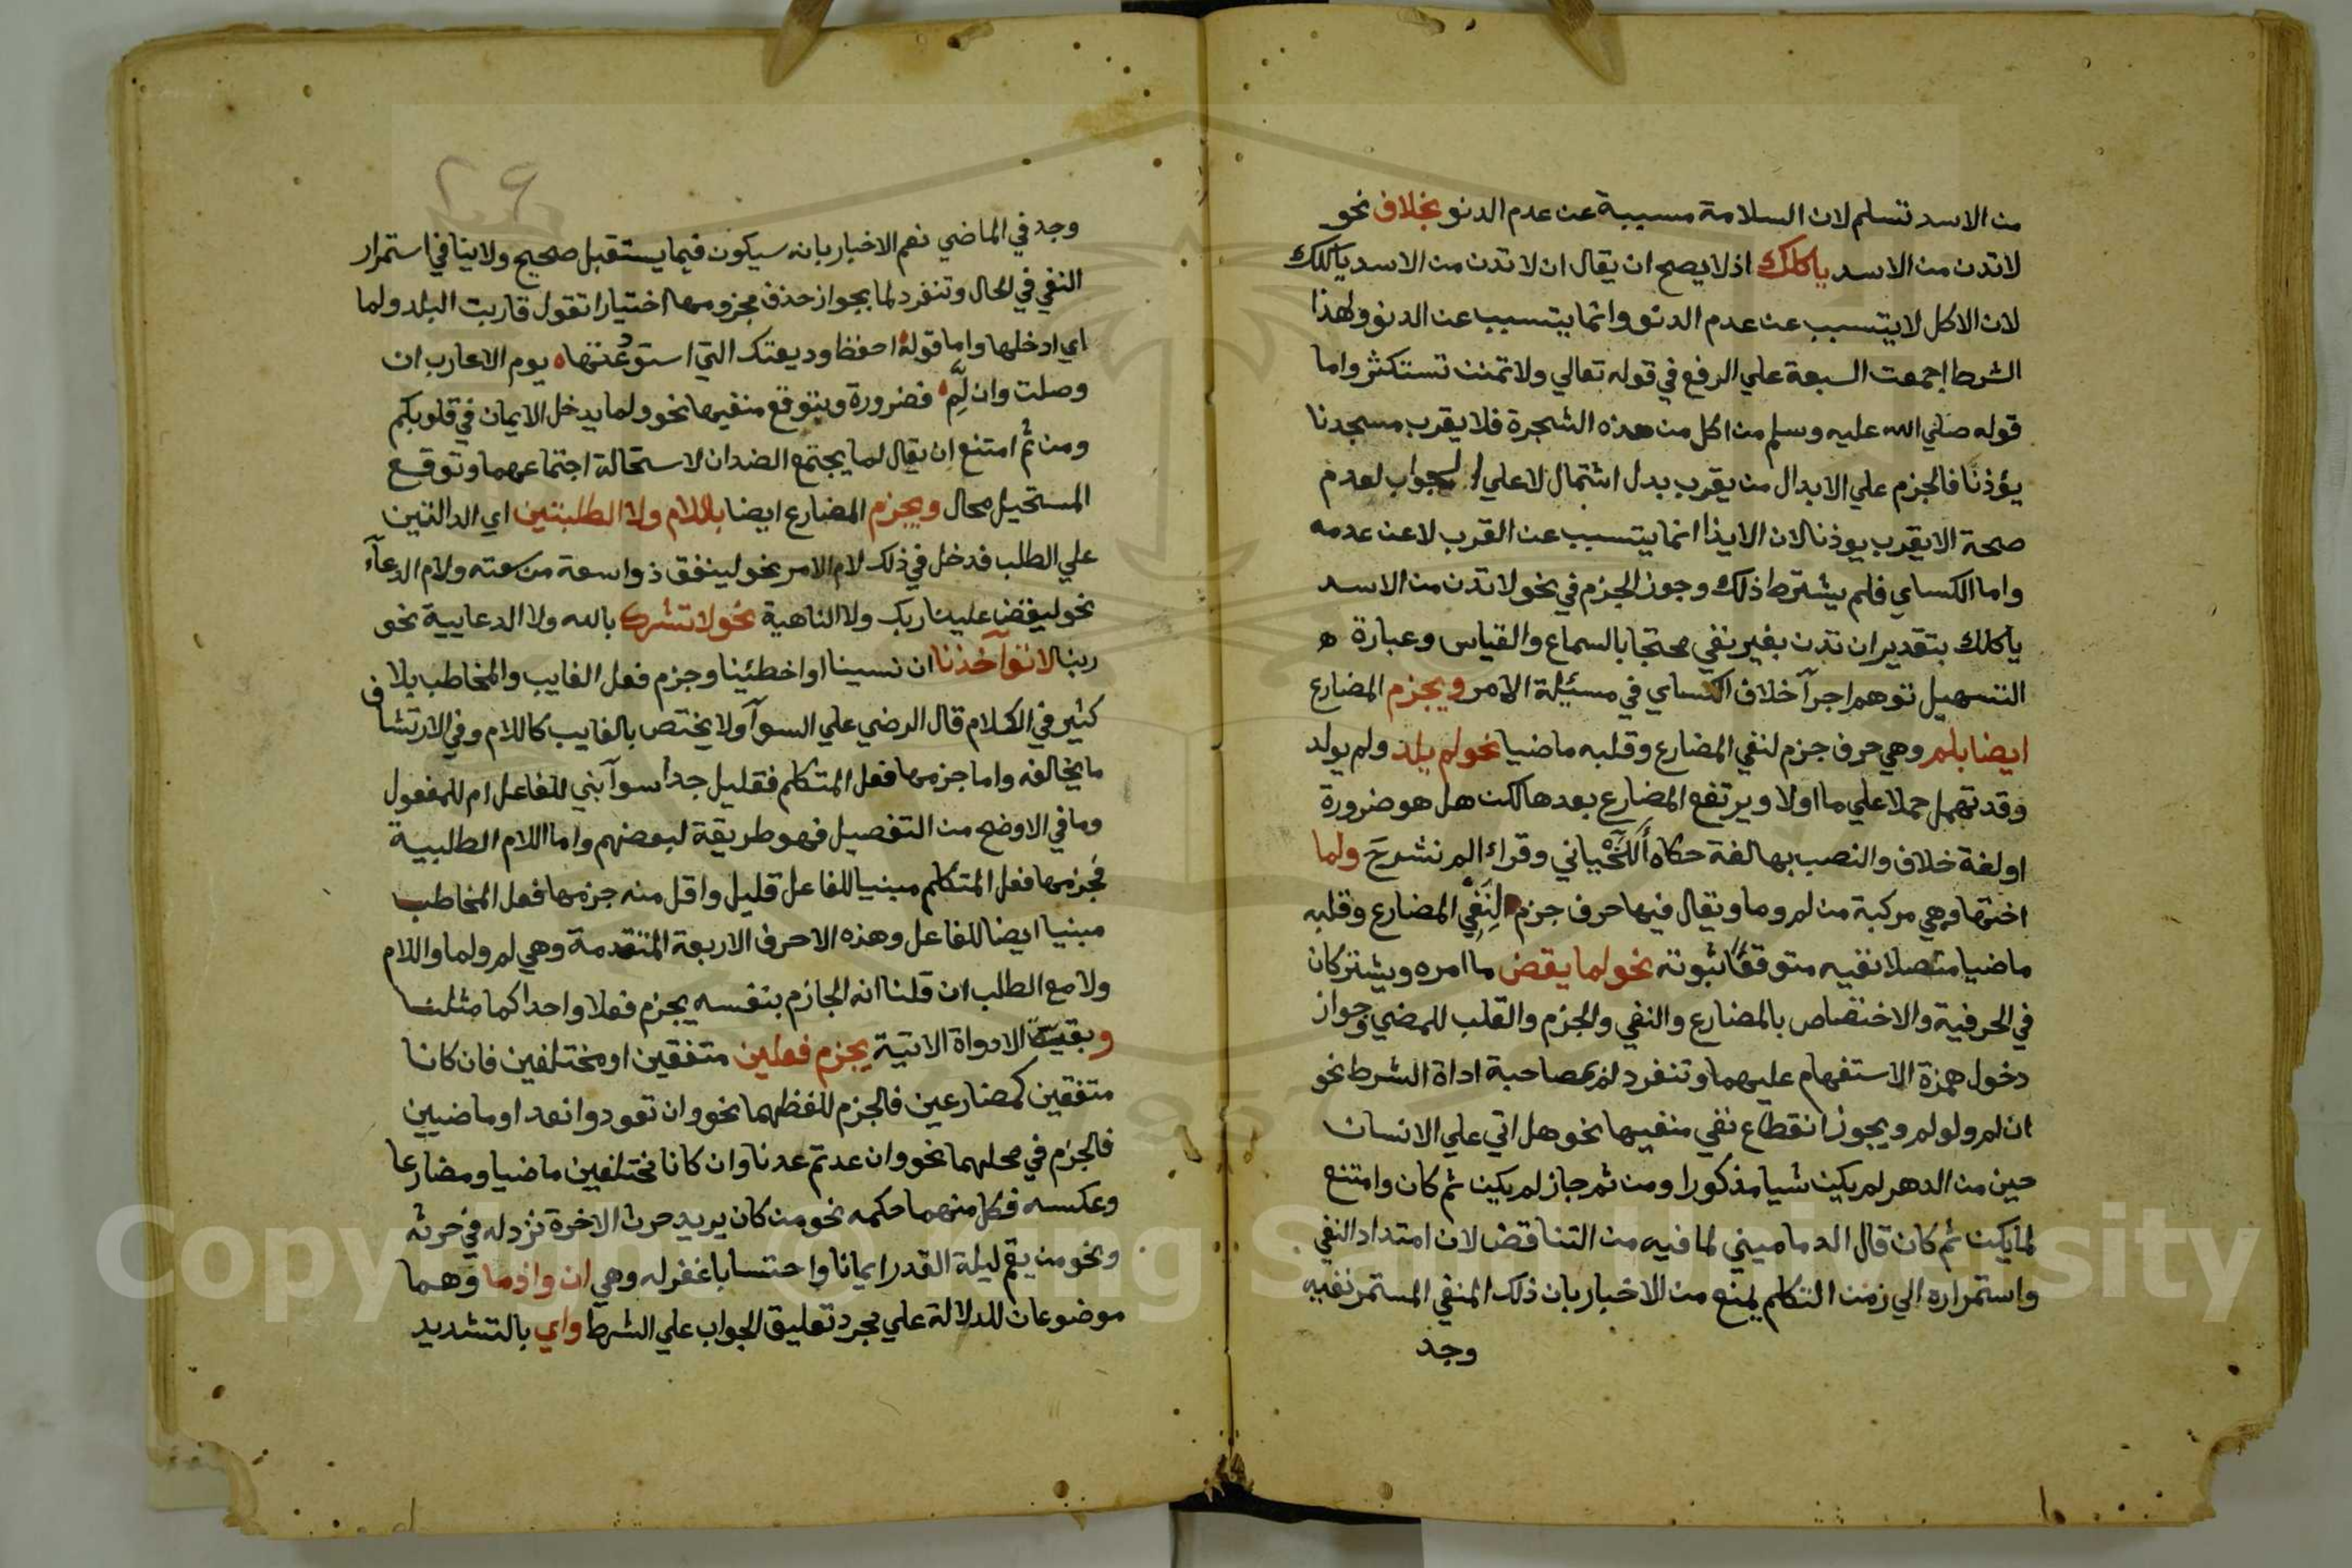 من الاسد تسلم لان السلامة مسببة عن عدم الدنو بخلاف نحو
لاتدن من الاسد ياكلك اذ لا يصح ان يقال ان لا تدن من الاسد ياكلك
لان الاكل لا يتسبب عن عدم الدنو وانما يتسبب عن الدنو ولهذا
الشرط اجمعت السبعة علي الرفع في قوله تعالي ولا تمنن تستكثر واما
قوله صلي الله عليه وسلم من اكل من هذه الشجرة فلا يقرب مسجدنا
يؤذنا فالجزم علي الابدال من يقرب بدل اشتمال لا علي الجواب لعدم
صحة الا يقرب يوذنا لان الايذا انما يتسبب عن القرب لا عن عدمه
واما الكساي فلم يشترط ذلك وجوز الجزم في نحو لا تدن من الاسد
ياكلك بتقدير ان تدن بغير نفي محتجا بالسماع والقياس وعبارة
التسهيل توهم اجرآ خلاف الكساي في مسئلة الامر ويجزم المضارع
ايضا بلم وهي حرف جزم لنفي المضارع وقلبه ماضيا نحو لم يلد ولم يولد
وقد تهمل حملا علي ما اولا ويرتفع المضارع بعدها لكن هل هو ضرورة
او لغة خلاف والنصب بها لغة حكاه اللحياني وقراء الم نشرحَ ولما
اختها وهي مركبة من لم وما ويقال فيها حرف جزم لِنَفْي المضارع وقلبه
ماضيا متصلا نفيه متوقعا ثبوته نحو لما يقض ما امره ويشتركان
في الحرفية والاختصاص بالمضارع والنفي والجزم والقلب للمضي وجواز
دخول همزة الاستفهام عليهما وتنفرد لم بمصاحبة اداة الشرط نحو
ان لم ولو لم ويجوز انقطاع نفي منفيها نحو هل اتي علي الانسان
حين من الدهر لم يكن شيا مذكورا ومن ثم جاز لم يكن ثم كان وامتنع
لما يكن ثم كان قال الدماميني لما فيه من التناقض لان امتداد النفي
واستمراره الي زمن التكلم يمنع من الاخبار بان ذلك المنفي المستمر نفيه
وجد
٢٩
وجد في الماضي نعم الاخبار بانه سيكون فيما يستقبل صحيح ولا ينافي استمرار
النفي في الحال وتنفرد لما بجواز حذف مجزومها اختيارا تقول قاربت البلد ولما
اي ادخلها واما قوله احفظ وديعتك التي استودعتها يوم الاعارب ان
وصلت وان لَمِ فضرورة وبتوقع منفيها نحو ولما يدخل الايمان في قلوبكم
ومن ثم امتنع ان يقال لما يجتمع الضدان لاستحالة اجتماعهما وتوقع
المستحيل محال ويجزم المضارع ايضا باللام ولا الطلبتين اي الدالتين
علي الطلب فدخل في ذلك لام الامر نحو لينفق ذو اسعة من سعته ولام الدعآء
نحو ليقض علينا ربك ولا الناهية نحو لا تشرك بالله ولا الدعايية نحو
ربنا لا تؤآخذنا ان نسينا او اخطئينا وجزم فعل الغايب والمخاطب بلا
كثير في الكلام قال الرضي علي السوآ ولا يختص بالغايب كاللام وفي الارتشاف
ما يخالفه واما جزمها فعل المتكلم فقليل جدا سوآ بني للفاعل ام للمفعول
وما في الاوضح من التفصيل فهو طريقة لبعضهم واما اللام الطلبية
فجزمها فعل المتكلم مبنيا للفاعل قليل واقل منه جزمها فعل المخاطب
مبنيا ايضا للفاعل وهذه الاحرف الاربعة المتقدمة وهي لم ولما واللام
ولا مع الطلب ان قلنا انه الجازم بنفسه يجزم فعلا واحدا كما مثلنا
وبقية الادواة الاتية يجزم فعلين متفقين او مختلفين فان كانا
متفقين كمضارعين فالجزم للفظهما نحو وان تعودوا نعد او ماضيين
فالجزم في محلهما نحو وان عدتم عدنا وان كانا مختلفين ماضيا ومضارعا
وعكسه فكل منهما حكمه نحو من كان يريد حرث الاخرة نزد له في حرثه
ونحو من يقم ليلة القدر ايمانا واحتسابا غفر له وهي ان واذما وهما
موضوعان للدلالة علي مجرد تعليق الجواب علي الشرط واي بالتشديد